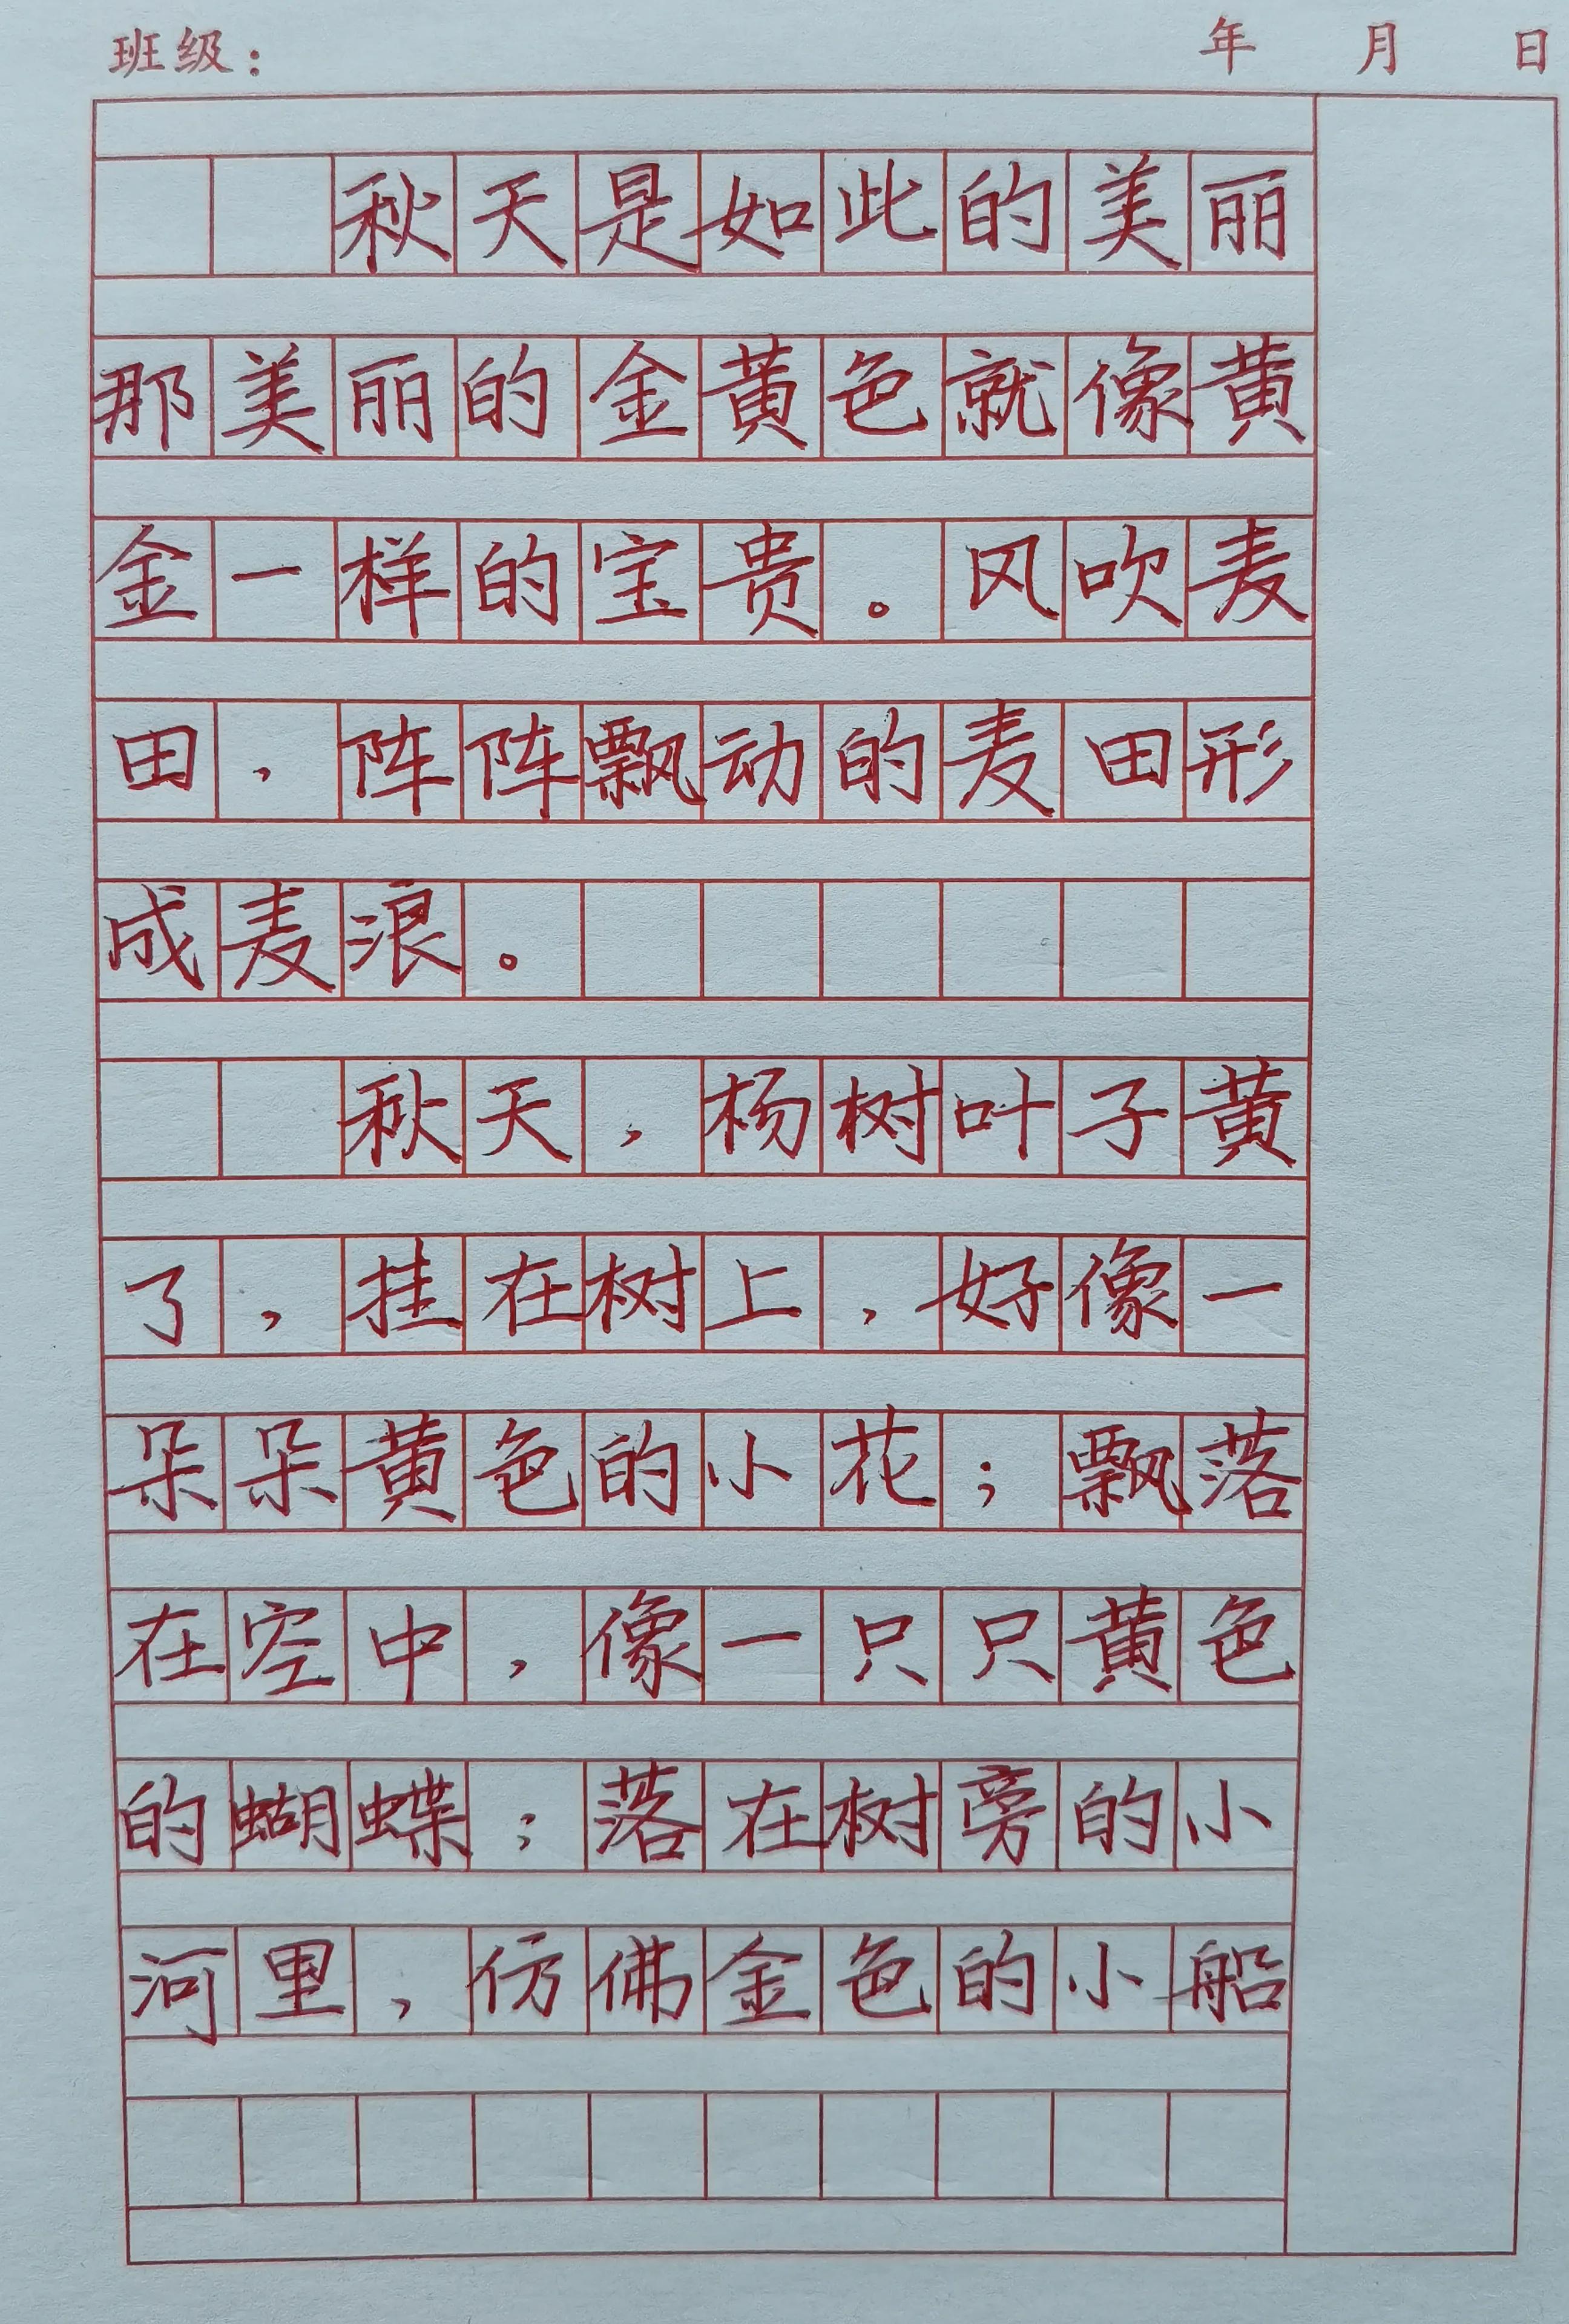 班级： 年 月 日
秋天是如此的美丽
那美丽的金黄色就像黄
金一样的宝贵。风吹麦
田，阵阵飘动的麦田形
成麦浪。
秋天，杨树叶子黄
了，挂在树上，好像一
朵朵黄色的小花；飘落
在空中，像一只只黄色
的蝴蝶；落在树旁的小
河里，仿佛金色的小船